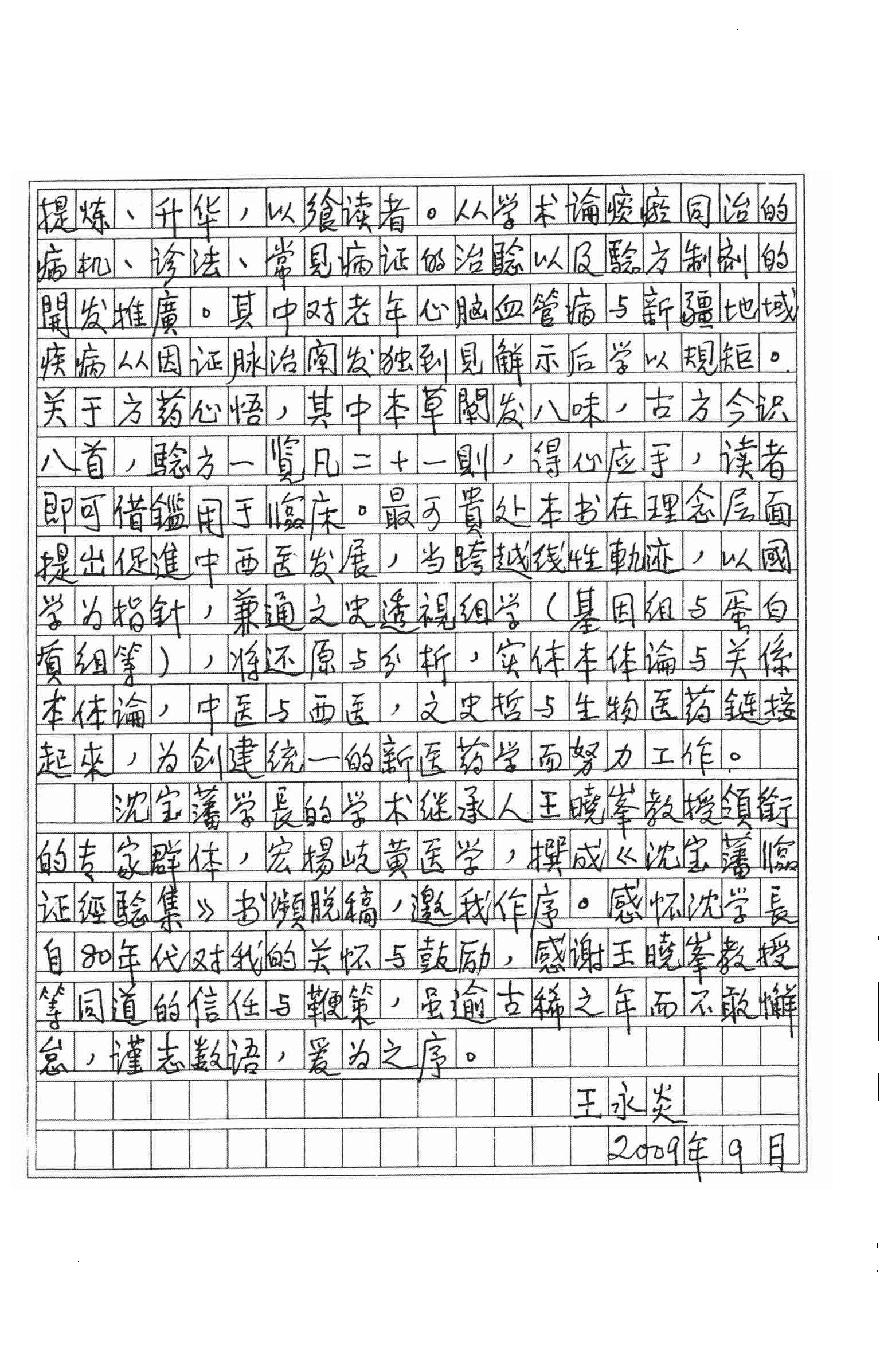 提炼、升华，以飨读者。从学术论痰瘀同治的
病机、诊法、常见病证的治驗以及驗方制剂的
開发推廣。其中对老年心脑血管病与新疆地域
疾病从因证脉治阐发独到见解示后学以规矩。
关于方药心悟，其中本草闡发八味，古方今识
八首，驗方一覽凡二十一則，得心应手，读者
即可借鑑用于臨床。最可貴处本书在理念层面
提出促進中西医发展，当跨越线性軌迹，以國
学为指針，兼通文史透視组学（基因组与蛋白
质组等），将还原与分析，实体本体论与关係
本体論，中医与西医，文史哲与生物医药鏈接
起來，为创建统一的新医药学而努力工作。
沈宝藩学長的学术继承人王曉峯教授領銜
的专家群体，宏揚岐黄医学，撰成《沈宝藩臨
证經驗集》书瀕脱稿，邀我作序。感怀沈学長
自80年代对我的关怀与鼓励，感谢王曉峯教授
等同道的信任与鞭策，虽逾古稀之年而不敢懈
怠，谨志数语，爰为之序。
王永炎
2009年9月